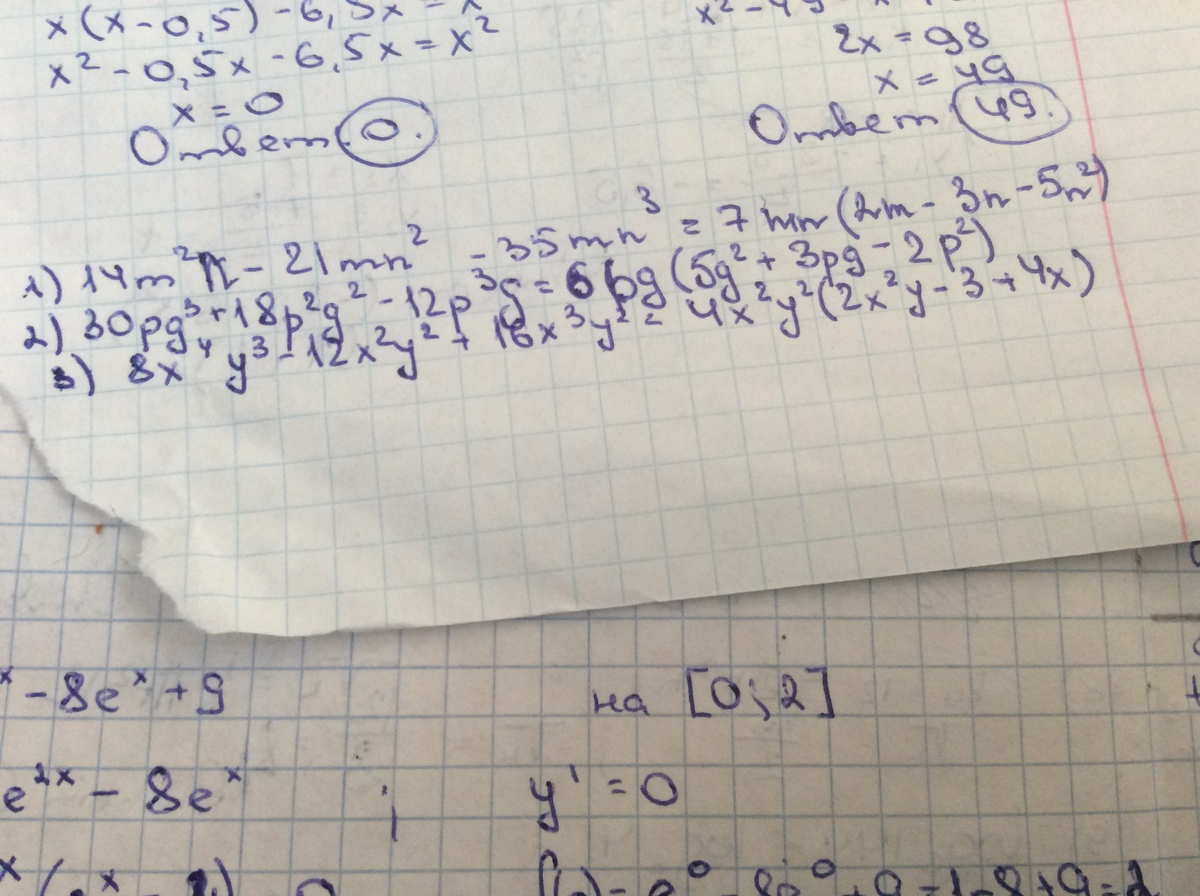 x(x-0,5)-6,5x=x
x²-0,5x-6,5x=x²
x=0
Ответ 0.
2x=98
x=49
Ответ 49.
1) 14m²n-21mn²-35mn³=7mn(2m-3n-5n²)
2) 30pg³+18p²g²-12p³g=6pg(5g²+3pg-2p²)
3) 8x⁴y³-12x²y²+16x³y²=4x²y²(2x²y-3+4x)
-8eˣ+9 на [0;2]
e²ˣ-8eˣ; y'=0